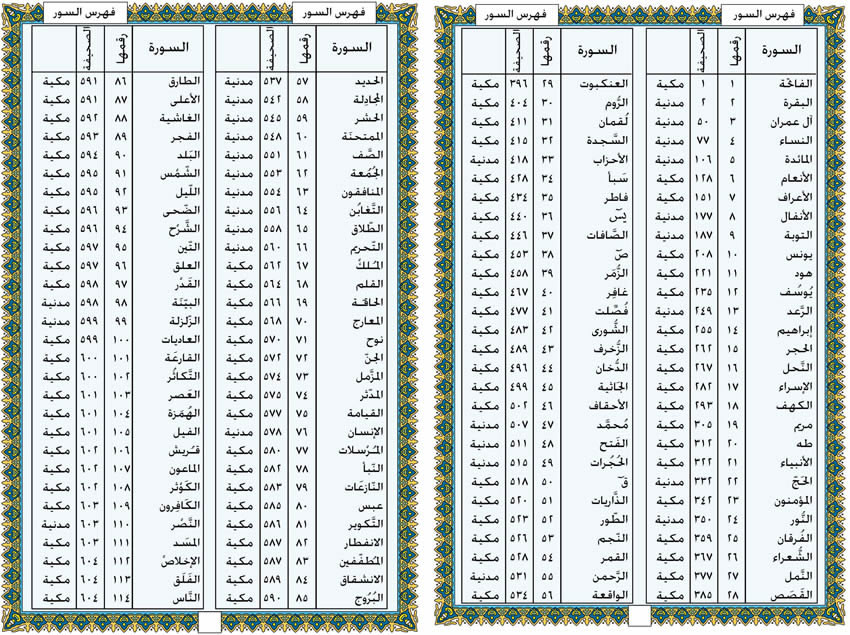 فهرس السور
السورة رقمها الصحيفة
الفاتحة ١ ١ مكية
البقرة ٢ ٢ مدنية
آل عمران ٣ ٥٠ مدنية
النساء ٤ ٧٧ مدنية
المائدة ٥ ١٠٦ مدنية
الأنعام ٦ ١٢٨ مكية
الأعراف ٧ ١٥١ مكية
الأنفال ٨ ١٧٧ مدنية
التوبة ٩ ١٨٧ مدنية
يونس ١٠ ٢٠٨ مكية
هود ١١ ٢٢١ مكية
يُوسُف ١٢ ٢٣٥ مكية
الرَّعد ١٣ ٢٤٩ مدنية
إبراهيم ١٤ ٢٥٥ مكية
الحجر ١٥ ٢٦٢ مكية
النَّحل ١٦ ٢٦٧ مكية
الإسراء ١٧ ٢٨٢ مكية
الكهف ١٨ ٢٩٣ مكية
مريم ١٩ ٣٠٥ مكية
طه ٢٠ ٣١٢ مكية
الأنبياء ٢١ ٣٢٢ مكية
الحَجّ ٢٢ ٣٣٢ مدنية
المؤمنون ٢٣ ٣٤٢ مكية
النُّور ٢٤ ٣٥٠ مدنية
الفُرقان ٢٥ ٣٥٩ مكية
الشُّعراء ٢٦ ٣٦٧ مكية
النَّمل ٢٧ ٣٧٧ مكية
القَصَص ٢٨ ٣٨٥ مكية
فهرس السور
السورة رقمها الصحيفة
العنكبوت ٢٩ ٣٩٦ مكية
الرُّوم ٣٠ ٤٠٤ مكية
لُقمان ٣١ ٤١١ مكية
السَّجدة ٣٢ ٤١٥ مكية
الأحزاب ٣٣ ٤١٨ مدنية
سَبأ ٣٤ ٤٢٨ مكية
فاطر ٣٥ ٤٣٤ مكية
يسٓ ٣٦ ٤٤٠ مكية
الصَّافات ٣٧ ٤٤٦ مكية
صٓ ٣٨ ٤٥٣ مكية
الزُّمَر ٣٩ ٤٥٨ مكية
غافِر ٤٠ ٤٦٧ مكية
فُصِّلت ٤١ ٤٧٧ مكية
الشُّورى ٤٢ ٤٨٣ مكية
الزُّخرف ٤٣ ٤٨٩ مكية
الدُّخان ٤٤ ٤٩٦ مكية
الجاثية ٤٥ ٤٩٩ مكية
الأحقاف ٤٦ ٥٠٢ مكية
مُحمَّد ٤٧ ٥٠٧ مدنية
الفَتح ٤٨ ٥١١ مدنية
الحُجُرات ٤٩ ٥١٥ مدنية
قٓ ٥٠ ٥١٨ مكية
الذَّاريات ٥١ ٥٢٠ مكية
الطّور ٥٢ ٥٢٣ مكية
النّجم ٥٣ ٥٢٦ مكية
القمر ٥٤ ٥٢٨ مكية
الرَّحمن ٥٥ ٥٣١ مدنية
الواقعة ٥٦ ٥٣٤ مكية
فهرس السور
السورة رقمها الصحيفة
الحديد ٥٧ ٥٣٧ مدنية
المجَادِلة ٥٨ ٥٤٢ مدنية
الحشر ٥٩ ٥٤٥ مدنية
الممتحنَة ٦٠ ٥٤٨ مدنية
الصَّف ٦١ ٥٥١ مدنية
الجُمُعة ٦٢ ٥٥٣ مدنية
المنافقون ٦٣ ٥٥٤ مدنية
التَّغابُن ٦٤ ٥٥٦ مدنية
الطّلاق ٦٥ ٥٥٨ مدنية
التّحريم ٦٦ ٥٦٠ مدنية
المُلكُ ٦٧ ٥٦٢ مكية
القلم ٦٨ ٥٦٤ مكية
الحَاقـّة ٦٩ ٥٦٦ مكية
المعارج ٧٠ ٥٦٨ مكية
نوح ٧١ ٥٧٠ مكية
الجنّ ٧٢ ٥٧٢ مكية
المزَّمل ٧٣ ٥٧٤ مكية
المدَّثر ٧٤ ٥٧٥ مكية
القيامة ٧٥ ٥٧٧ مكية
الإنسان ٧٦ ٥٧٨ مدنية
المُرْسلات ٧٧ ٥٨٠ مكية
النَّبأ ٧٨ ٥٨٢ مكية
النَّازعَات ٧٩ ٥٨٣ مكية
عبس ٨٠ ٥٨٥ مكية
التَّكوير ٨١ ٥٨٦ مكية
الانفطار ٨٢ ٥٨٧ مكية
المُطفّفين ٨٣ ٥٨٧ مكية
الانشقاق ٨٤ ٥٨٩ مكية
البُرُوج ٨٥ ٥٩٠ مكية
فهرس السور
السورة رقمها الصحيفة
الطارق ٨٦ ٥٩١ مكية
الأعلى ٨٧ ٥٩١ مكية
الغاشية ٨٨ ٥٩٢ مكية
الفجر ٨٩ ٥٩٣ مكية
البَلد ٩٠ ٥٩٤ مكية
الشّمْس ٩١ ٥٩٥ مكية
اللّيل ٩٢ ٥٩٥ مكية
الضّحى ٩٣ ٥٩٦ مكية
الشَّرْح ٩٤ ٥٩٦ مكية
التّين ٩٥ ٥٩٧ مكية
العلق ٩٦ ٥٩٧ مكية
القَدْر ٩٧ ٥٩٨ مكية
البيّنَة ٩٨ ٥٩٨ مدنية
الزّلزلة ٩٩ ٥٩٩ مدنية
العاديات ١٠٠ ٥٩٩ مكية
القارعَة ١٠١ ٦٠٠ مكية
التَّكاثُر ١٠٢ ٦٠٠ مكية
العَصر ١٠٣ ٦٠١ مكية
الهُمَزة ١٠٤ ٦٠١ مكية
الفيل ١٠٥ ٦٠١ مكية
قـُريش ١٠٦ ٦٠٢ مكية
الماعون ١٠٧ ٦٠٢ مكية
الكَوْثر ١٠٨ ٦٠٢ مكية
الكَافِرون ١٠٩ ٦٠٣ مكية
النَّصْر ١١٠ ٦٠٣ مدنية
المسَد ١١١ ٦٠٣ مكية
الإخلاصُ ١١٢ ٦٠٤ مكية
الفَلَق ١١٣ ٦٠٤ مكية
النَّاس ١١٤ ٦٠٤ مكية